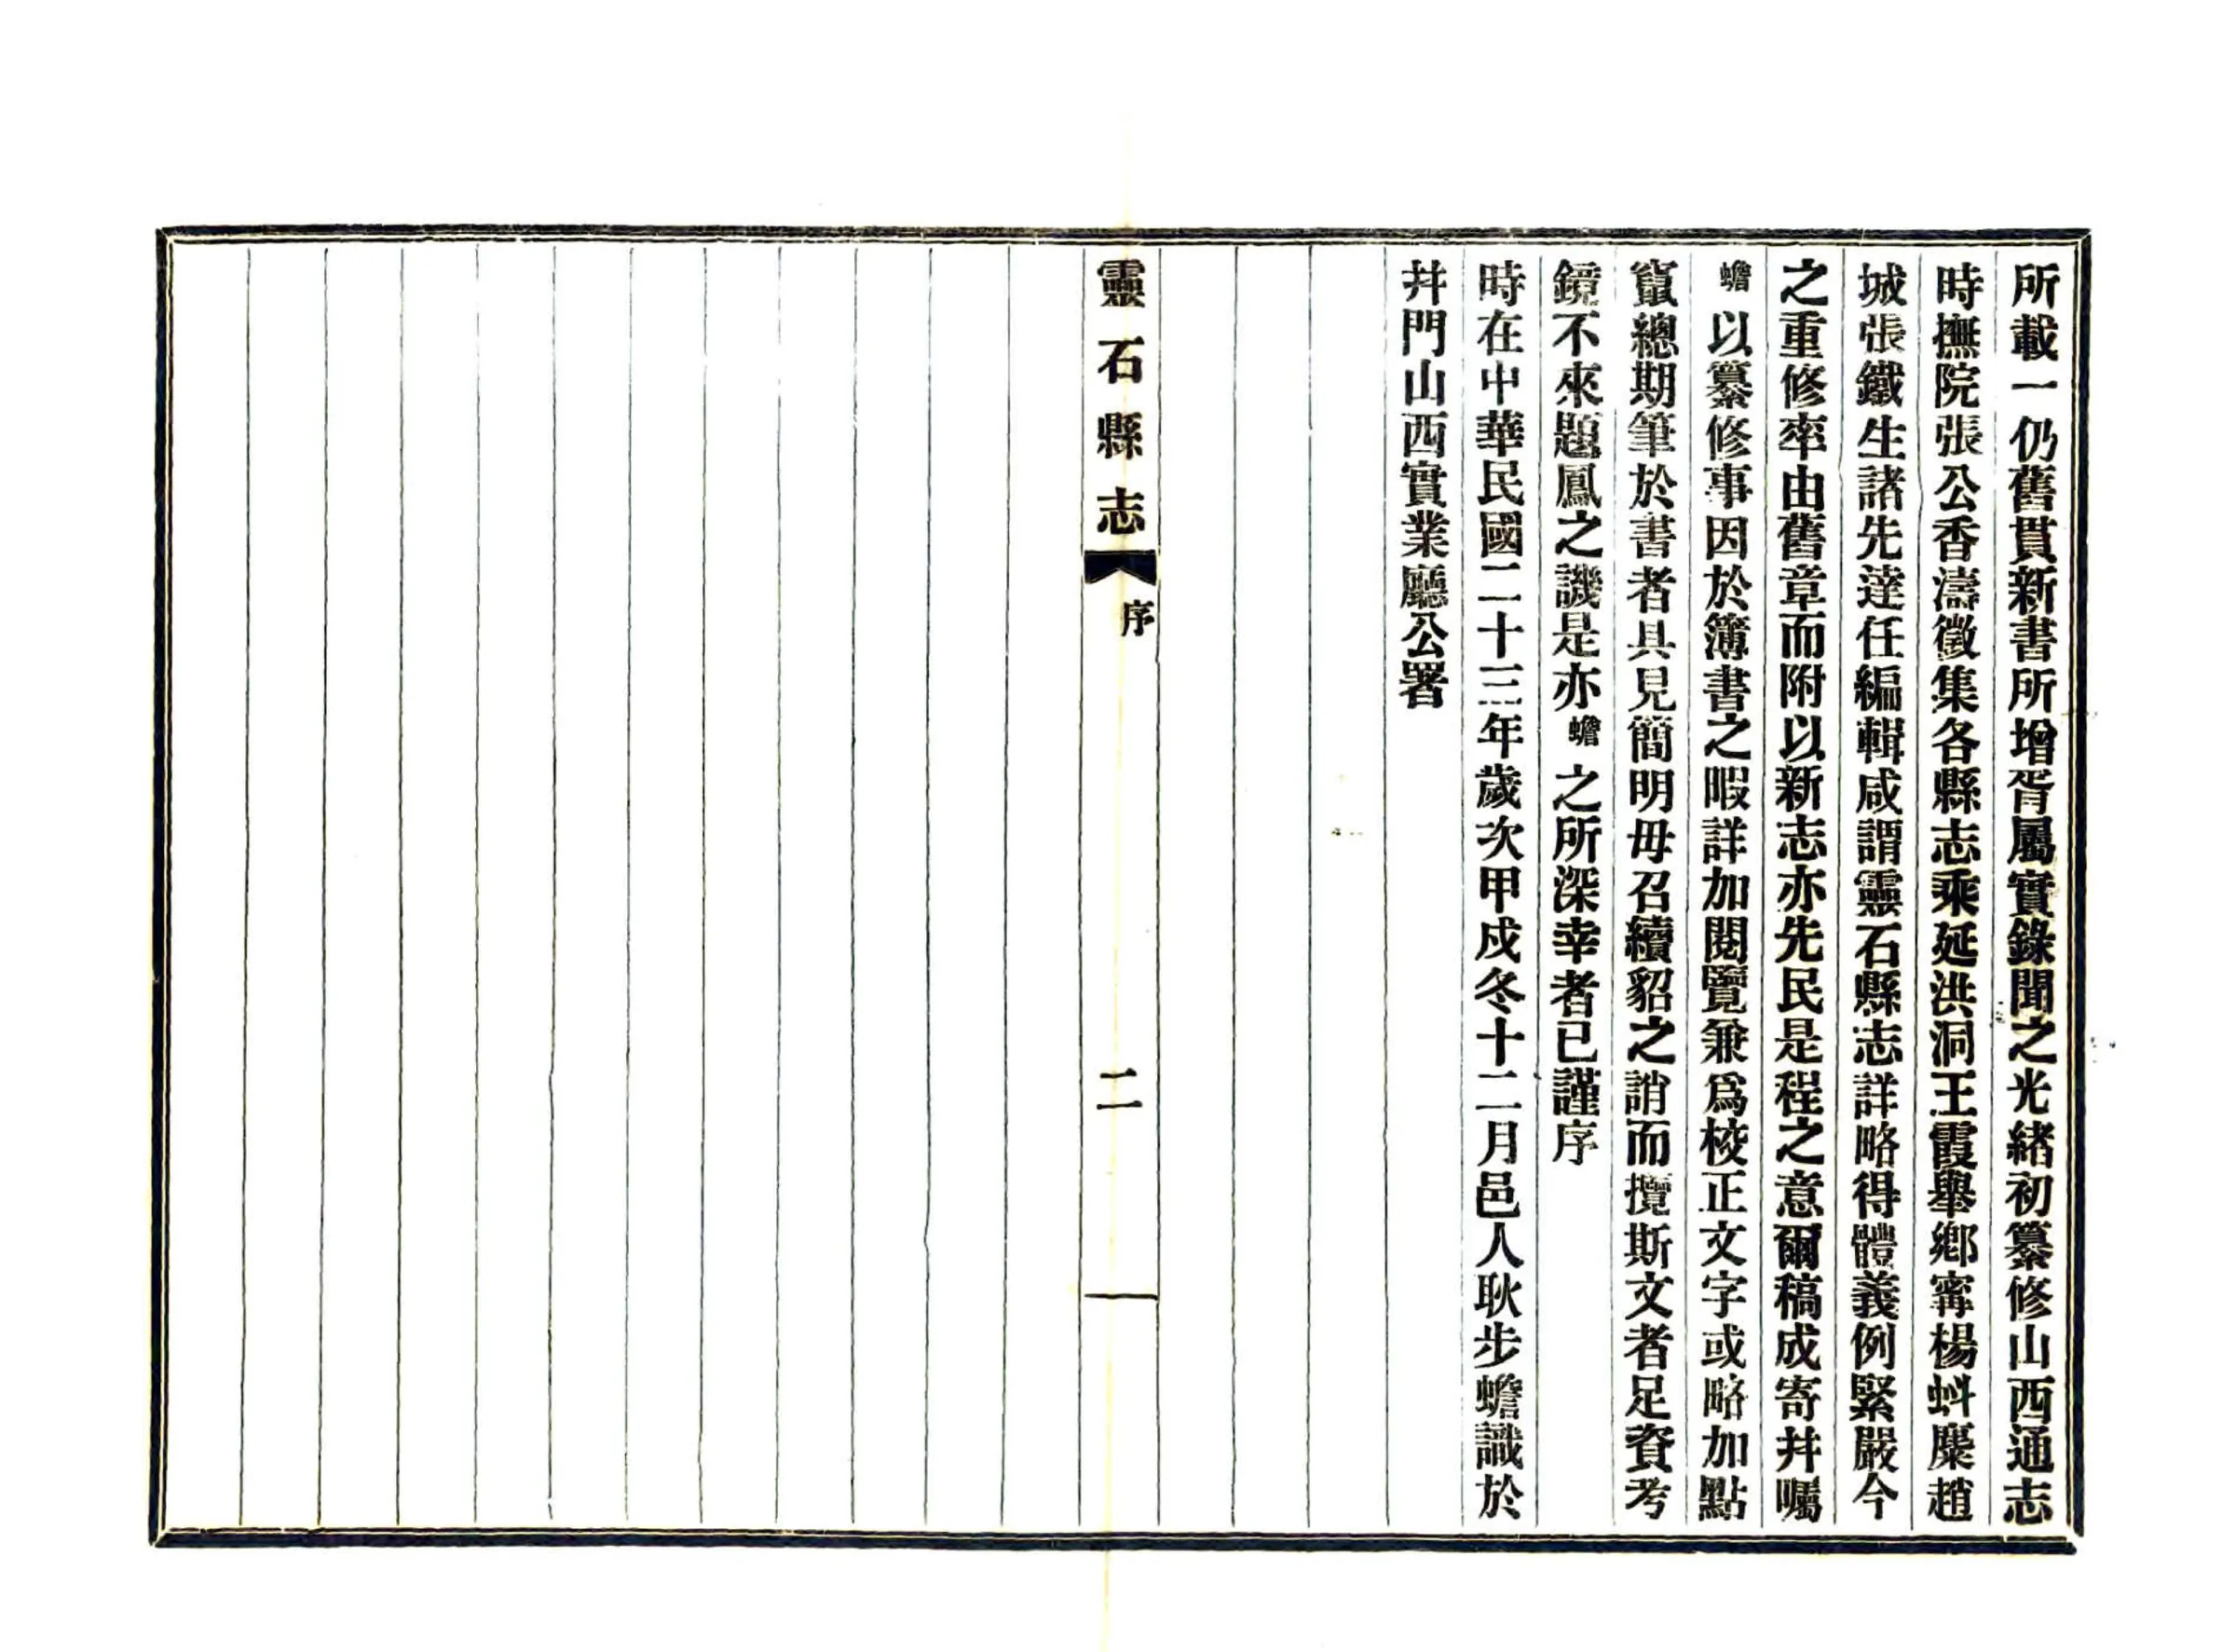 所載一仍舊貫新書所增胥屬實錄聞之光緒初纂修山西通志
時撫院張公香濤徵集各縣志乘延洪洞王霞舉鄉甯楊蚪麋趙
城張鐵生諸先達任編輯咸謂靈石縣志詳略得體義例緊嚴今
之重修率由舊章而附以新志亦先民是程之意爾稿成寄幷囑
蟾以纂修事因於簿書之暇詳加閱覽兼爲校正文字或略加點
竄總期筆於書者具見簡明毋召續貂之誚而攬斯文者足資考
鏡不來題鳳之譏是亦蟾之所深幸者已謹序
時在中華民國二十三年歲次甲戍冬十二月邑人耿步蟾識於
幷門山西實業廳公署
靈石縣志
序
二